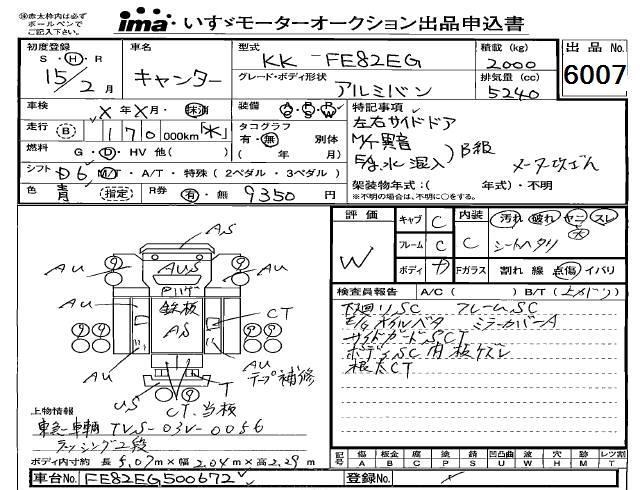 ※赤太枠内は必ず
ボールペンで
ご記入下さい。
ima いすゞモーターオークション出品申込書
初度登録
S・H・R
15/2月
車名
キャンター
型式
KK-FE82EG
グレード・ボディ形状
アルミバン
積載(kg)
2000
排気量(cc)
5240
出品No.
6007
車検
X年X月・抹消
装備
走行
(B) 170 000km
タコグラフ
有・無 別体
( 年 月)
燃料
G・D・HV 他( )
シフト
D6 MT・A/T・特殊(2ペダル・3ペダル)
色
青 (指定)
R券
有・無 9350円
特記事項
左右サイドドア
M/T異音
E/g 水混入
B級
メータ改ざん
架装物年式:( 年式)・不明
※不明の場合は、不明に○をする。
評価
W
キャブ C
フレーム C
ボディ カ
内装 C
Fガラス
汚れ 破れ ヤニ スレ
大
シートヘタリ
割れ 線 点傷 イバリ
検査員報告 A/C( ) B/T(上メドリ)
下回りSC フレームSC
E/gオイルベタ ミラーカバーA
サイドガードSCT
ボディSC 内板ケズレ
根太CT
AS
AU
AU
AUS
AU
AU
鉄板
AS
CT
AU
AU
テープ補修
US
T
CT.当板
上物情報
東急車輌 TVS-03V-0056
ラッシング2段
ボディ内寸約 長5.07m×幅2.04m×高2.29m
記号
傷 A
板金 B
腐 C
塗 P
錆 S
凹凸曲 U
波 W
穴 H
跡 M
レツ割 T
車台No. FE82EG500672
登録No.